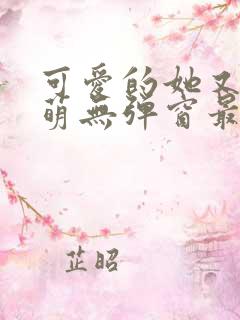 可愛的她又
萌無彈窗最
芷昭